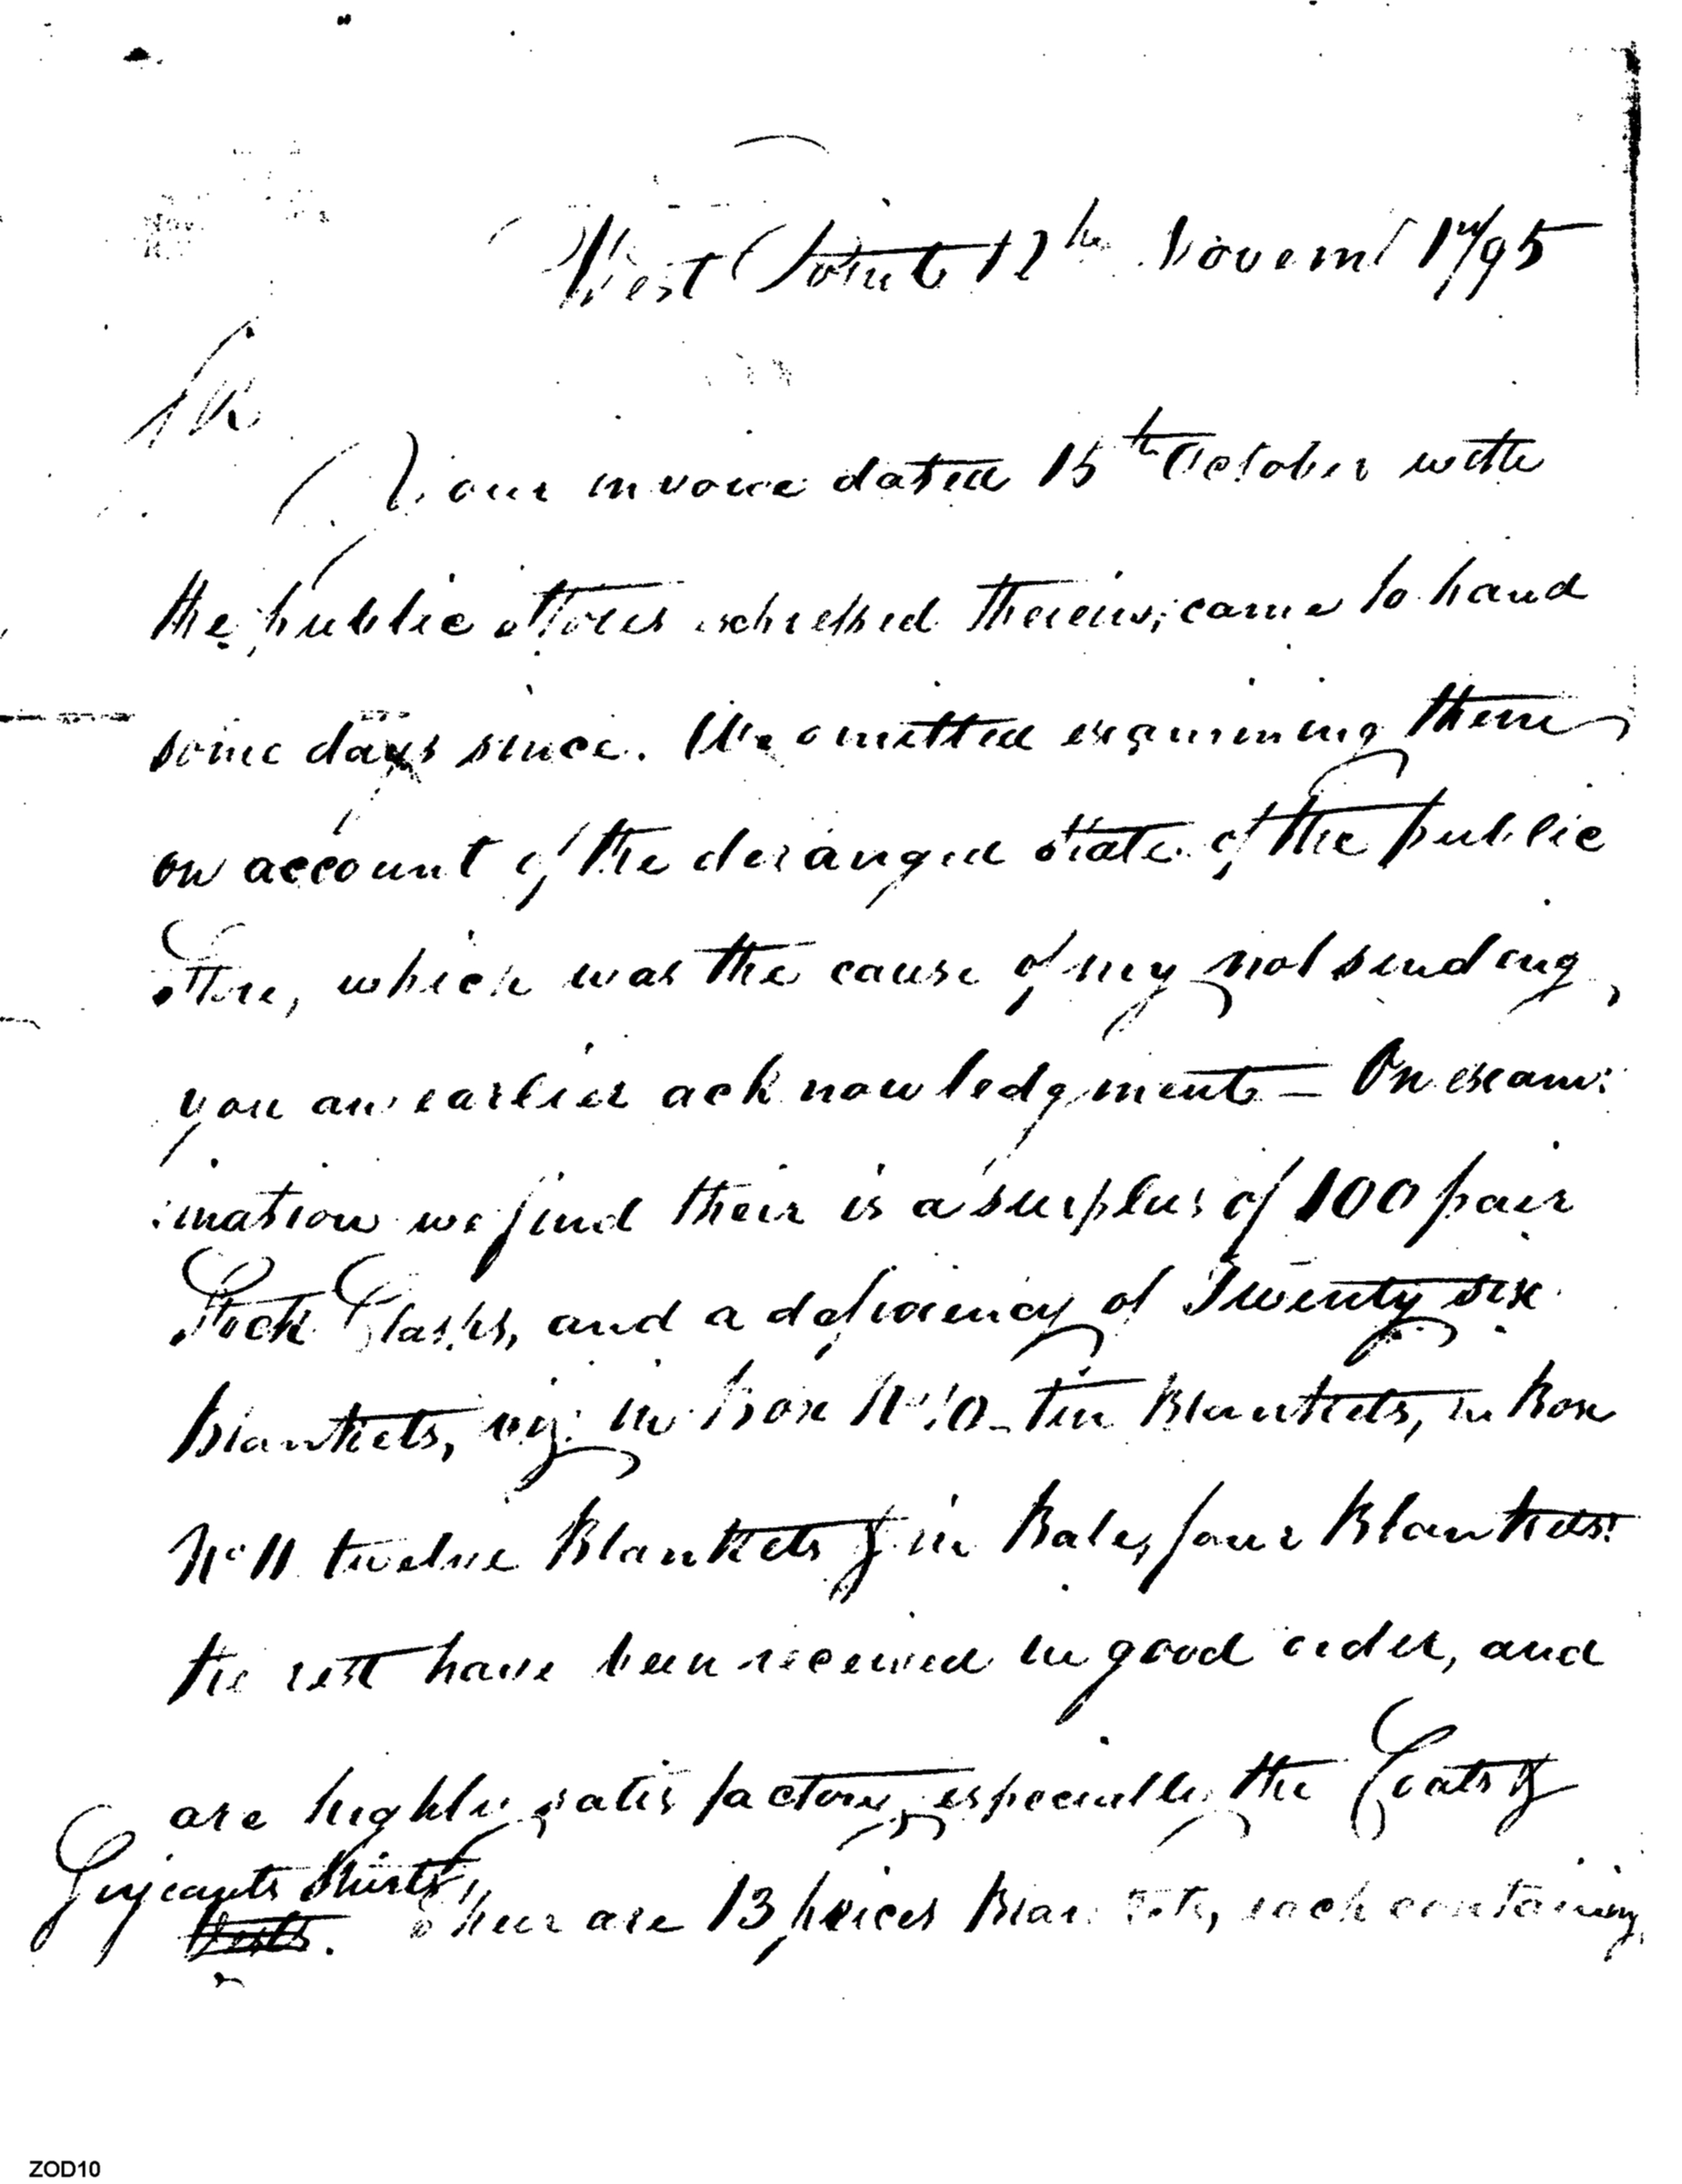 West Point 12th Novemr 1795
Sir
Your invoice dated 15th October with
the public stores expressed therein, came to hand
some days since. We omitted examining them
on account of the deranged state of the public
Store, which was the cause of my not sending
you an earlier acknowledgment — On exam:
:ination we find their is a surplus of 100 pair
Stock Clasps, and a deficiency of Twenty six
blankets, viz: in box No 10 - ten Blankets, in box
No 11 twelve Blankets & in Bale, four Blankets:
the rest have been received in good order, and
are highly satisfactory, especially the Coats &
Serjeants Shirts
Vests. There are 13 pieces Blankets, each containing
ZOD10